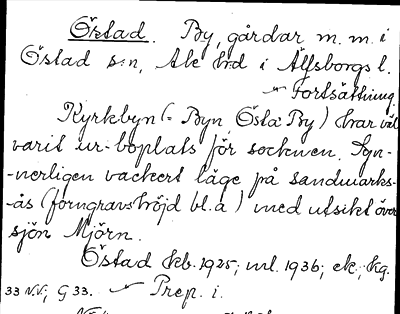 Östad. By, gårdar m.m. i
Östad s:n, Ale hrd i Älfsborgs l.
Fortsättning.
Kyrkbyn (= Byn Östa By) har väl
varit ur-boplats för socknen. Syn-
-nerligen vackert läge på sandmarks-
-ås (forngravshöjd bl.a) med utsikt över
sjön Mjörn.
Östad kb. 1925; ml. 1936; ek., kg.
33 N.V.; G 33. Prep. i.